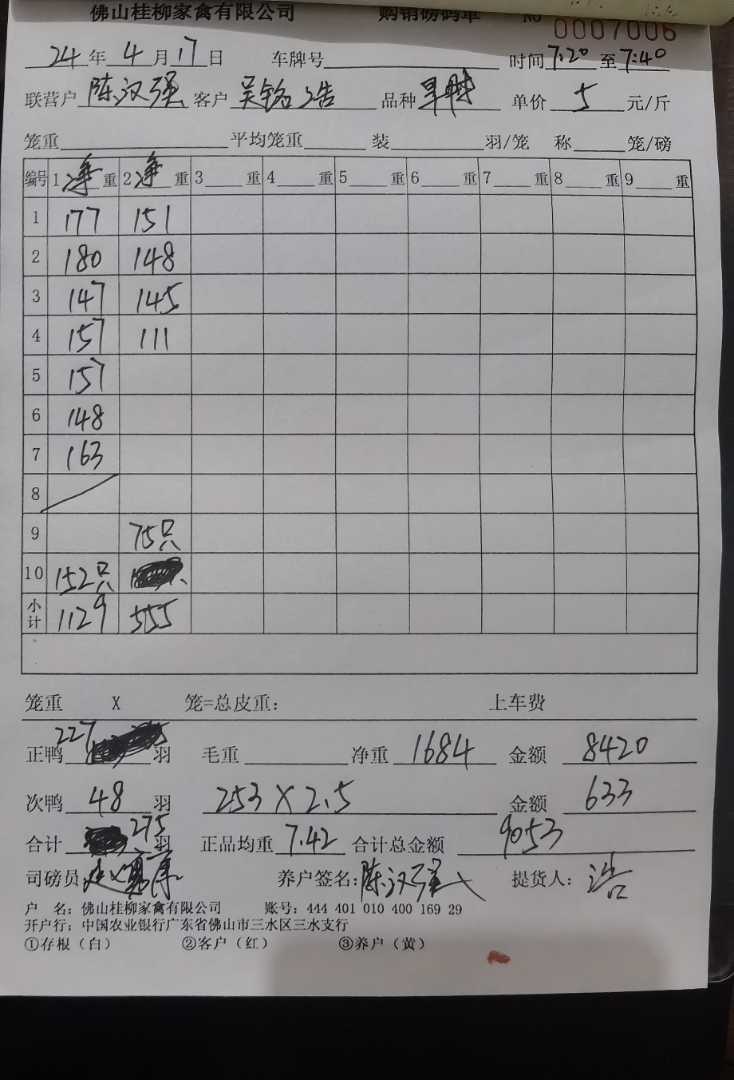 佛山桂柳家禽有限公司 购销磅码单 No 0007006
24年4月17日 车牌号 时间7:20至7:40
联营户 陈汉强 客户 吴铭浩 品种 旱鸭 单价 5 元/斤
笼重 平均笼重 装 羽/笼 称 笼/磅
编号 1净重 2净重 3 重 4 重 5 重 6 重 7 重 8 重 9 重
1 177 151
2 180 148
3 147 145
4 157 111
5 157
6 148
7 163
8
9 75只
10 152只
小计 1129 555
笼重 X 笼=总皮重: 上车费
正鸭 227 羽 毛重 净重 1684 金额 8420
次鸭 48 羽 253×2.5 金额 633
合计 275 羽 正品均重 7.42 合计总金额 9053
司磅员 养户签名: 陈汉强 提货人: 浩
户 名: 佛山桂柳家禽有限公司 账号: 444 401 010 400 169 29
开户行: 中国农业银行广东省佛山市三水区三水支行
①存根(白) ②客户(红) ③养户(黄)